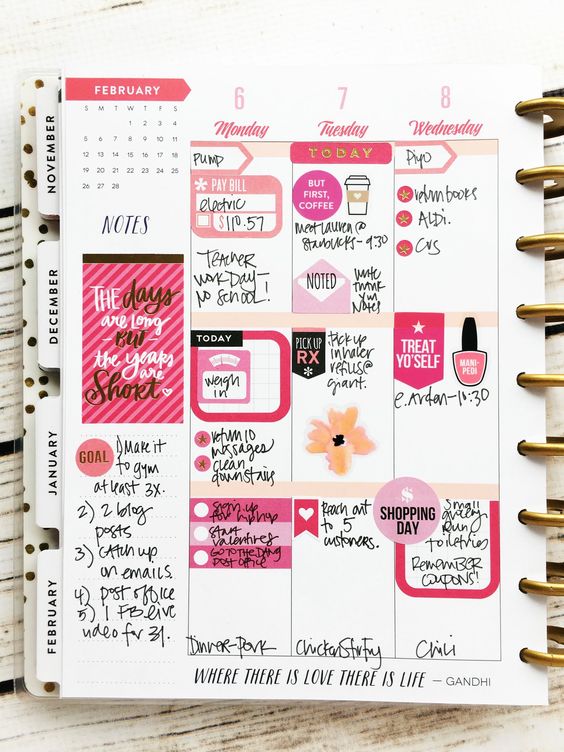 NOVEMBER
DECEMBER
JANUARY
FEBRUARY
FEBRUARY
S M T W T F S
1 2 3 4
5 6 7 8 9 10 11
12 13 14 15 16 17 18
19 20 21 22 23 24 25
26 27 28
NOTES
THE days
are LONG
BUT
the YEARS
ARE
SHORT
GOAL
1) Make it
to gym
at least 3x.
2) 2 blog
posts
3) Catch up
on emails.
4) post office
5) 1 FB live
video for 31.
6
Monday
PUMP
PAY BILL
electric
$110.57
TEACHER
WORK DAY-
NO SCHOOL!
TODAY
weigh
in
return 10
messages
clean
downstairs
sign up
for hip hop
start
valentines
GO TO THE DANG
post office
Dinner-Pork
7
Tuesday
TODAY
BUT
FIRST,
COFFEE
meet Lauren @
Starbucks-9:30
NOTED
write
thank
you
notes
PICK UP
RX
pick up
inhaler
refills @
giant.
Reach out
to 5
customers.
Chicken Stir Fry
8
Wednesday
Piyo
return books
ALDI.
CVS
TREAT
YO'SELF
MANI-
PEDI
e.Arden-10:30
$
SHOPPING
DAY
Small
grocery
Run
toiletries
REMEMBER
COUPONS!
Chili
WHERE THERE IS LOVE THERE IS LIFE — GANDHI